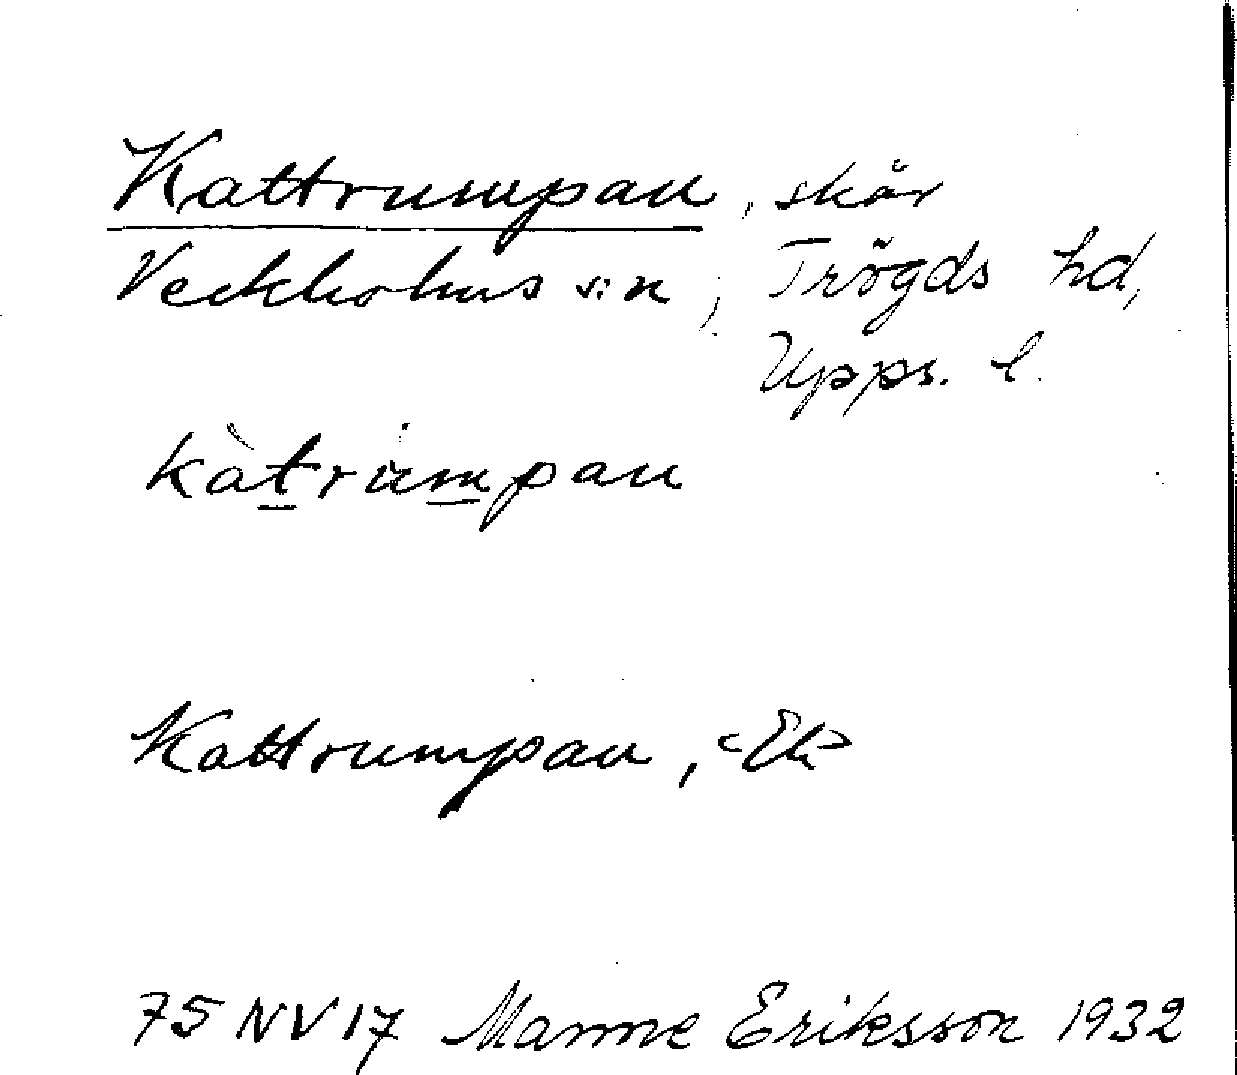 Kattrumpan, skär
Veckholms s:n, Trögds hd,
Upps. l.
kàtrùmpan
Kattrumpan, <Ek>
75 NV 17 Manne Eriksson 1932